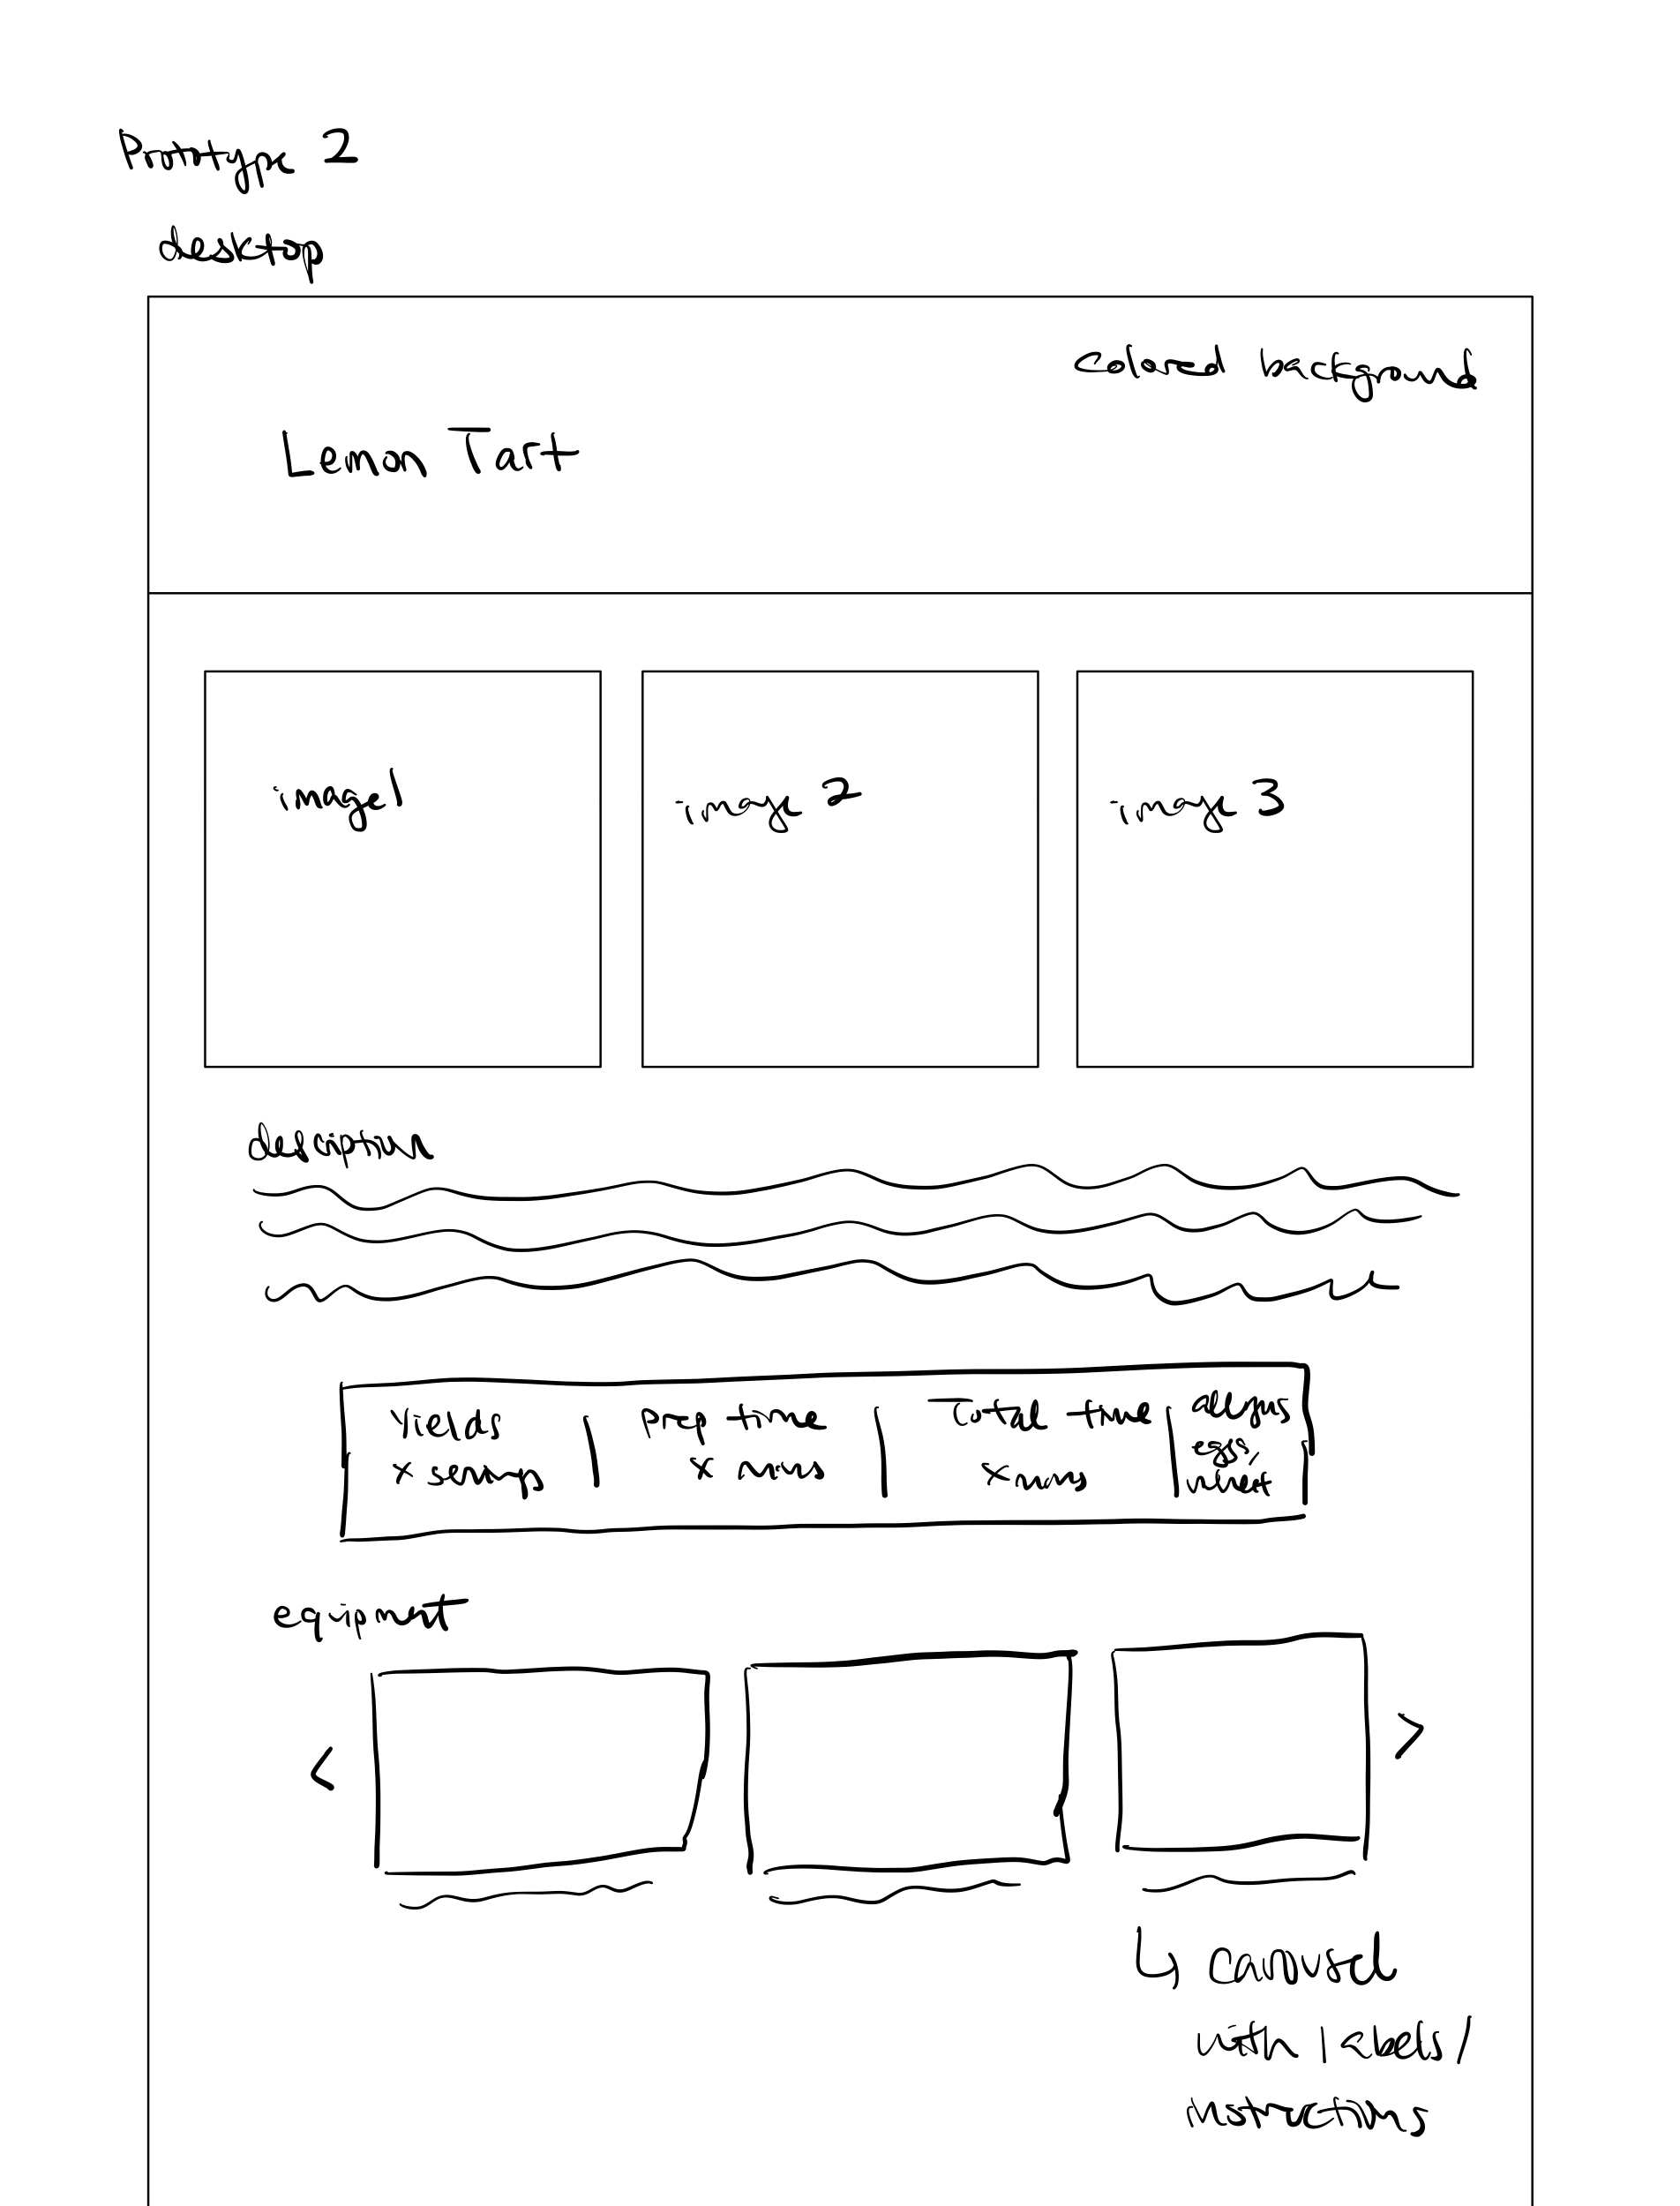 Prototype 2
desktop
colored background
Lemon Tart
image 1
image 2
image 3
description
Yields
x servings
prep time
x mins
Total time
x mins
allergens
eggs,
wheat
equipment
<
>
↳ carousel
with labels/
instructions